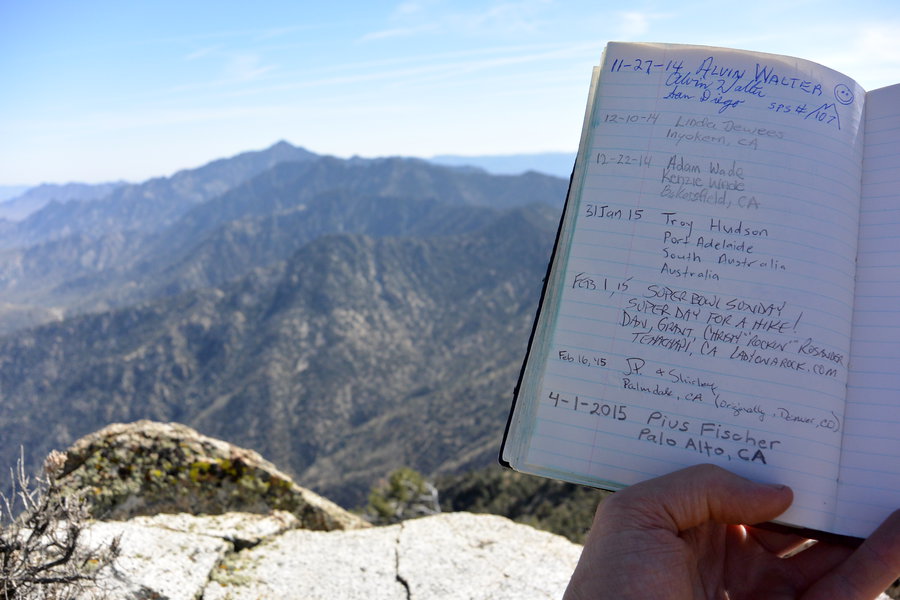 11-27-14 ALVIN WALTER
Alvin Walter
San Diego SPS #/107
12-10-14 Linda Deweess
Inyokern, CA
12-22-14 Adam Wade
Kenzie Wade
Bakersfield, CA
31 Jan 15 Troy Hudson
Port Adelaide
South Australia
Australia
FEB. 1, 15 SUPERBOWL SUNDAY
SUPER DAY FOR A HIKE!
DAN, GRANT, CHRISTY "ROCKIN" ROSANDER
TEHACHAPI, CA LADYONAROCK.COM
Feb 16, 15 J.P. & Shirley
Palmdale, CA (originally, Denver, CO)
4-1-2015 Pius Fischer
Palo Alto, CA